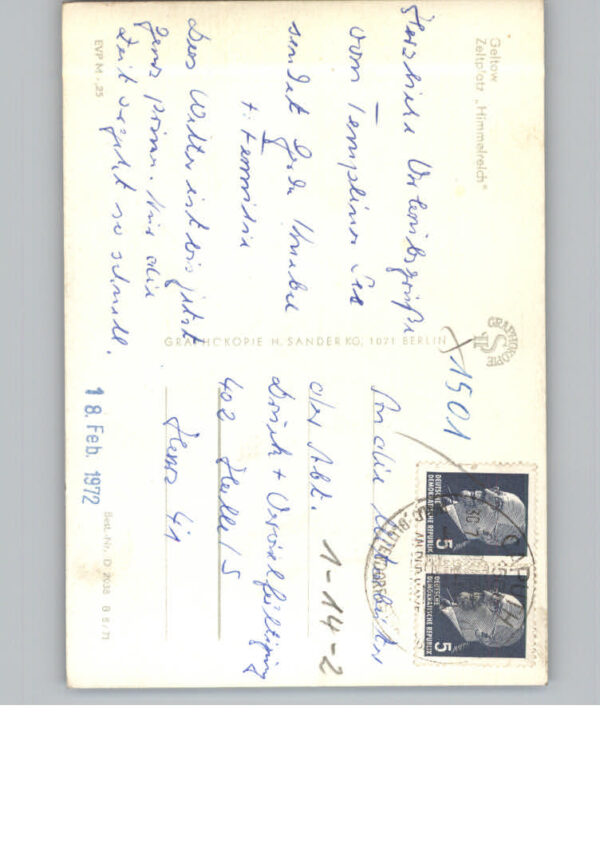 Geltow
Zeltplatz „Himmelreich“
Herzliche Urlaubsgrüße
vom Templiner See
sendet Gerda
+ Familie
Das Wetter ist bis jetzt
ganz prima. Nur die
Zeit vergeht so schnell.
EVP M -,25
GRAPHOKOPIE H. SANDER KG, 1071 BERLIN
GRAPHOKOPIE
1501
DEUTSCHE DEMOKRATISCHE REPUBLIK 5
DEUTSCHE DEMOKRATISCHE REPUBLIK 5
An die Mitarbeiter
der Abt.
1-14-2
Druck + Vervielfältigung
402 Halle/S
41
18. Feb. 1972
Best.-Nr. D 2038 B 6/71